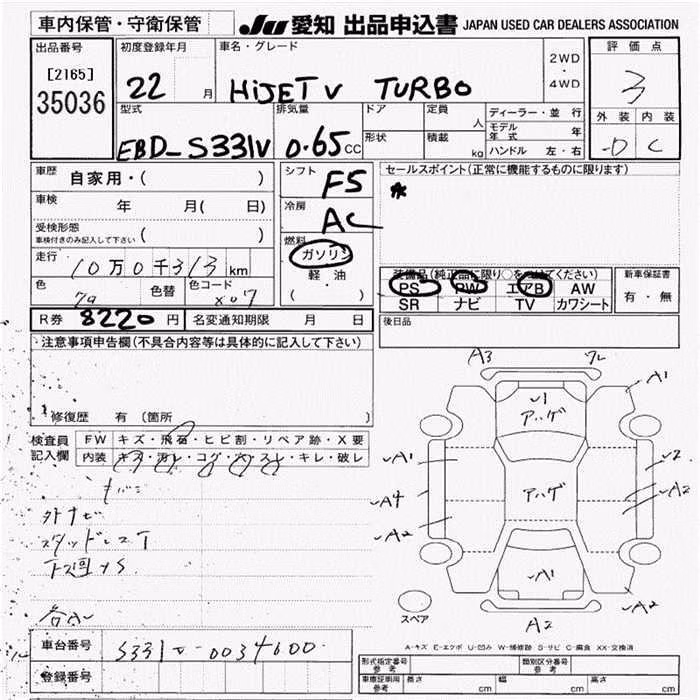 車内保管・守衛保管
JU 愛知 出品申込書 JAPAN USED CAR DEALERS ASSOCIATION
出品番号
[2165]
35036
初度登録年月
22 月
車名・グレード
HiJET V TURBO
2WD
・
4WD
評価点
3
外装 内装
D C
型式
EBD-S331V
排気量
0.65 CC
ドア
形状
定員 人
積載 kg
ディーラー・並行
モデル年式 年
ハンドル 左・右
車歴 自家用・( )
車検 年 月( 日)
受検形態
車検付きのみ記入して下さい ( )
走行 10万0千313 km
色
色替
色コード
X07
R券 8220円 名変通知期限 月 日
シフト F5
冷房 AC
燃料
ガソリン
軽油
( ・ )
セールスポイント(正常に機能するものに限ります)
装備品(純正品に限り○をつけてください)
PS PW エアB AW
SR ナビ TV カワシート
新車保証書
有・無
後日品
注意事項申告欄(不具合内容等は具体的に記入して下さい)
修復歴 有 〔箇所 〕
検査員記入欄
FW キズ・飛石・ヒビ割・リペア跡・X要
内装 キズ・汚レ・コゲ・穴・スレ・キレ・破レ
A3
A1
U1
アハゲ
A1
A4
A2
アハゲ
A2
A1
A2
A2
スペア
A-キズ E-エクボ U-凹み W-補修跡 S-サビ C-腐食 XX-交換済
車台番号 S331V-0034600
登録番号
形式指定番号
参考
類別区分番号
参考
車庫証明用
参考
長さ cm 幅 cm 高さ cm